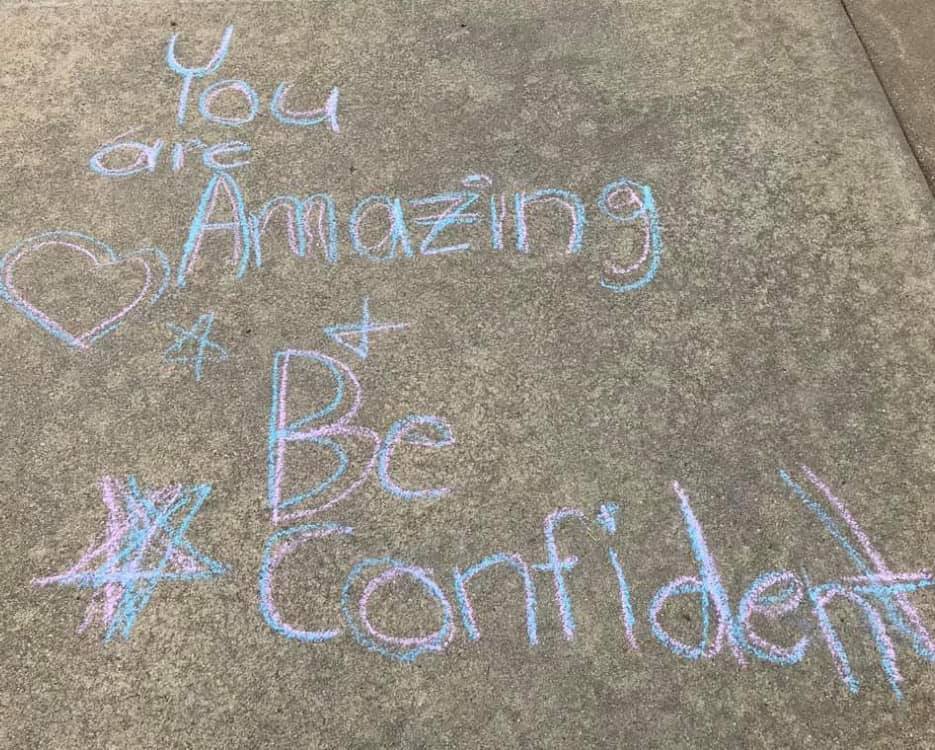 You
are
Amazing
Be
Confident